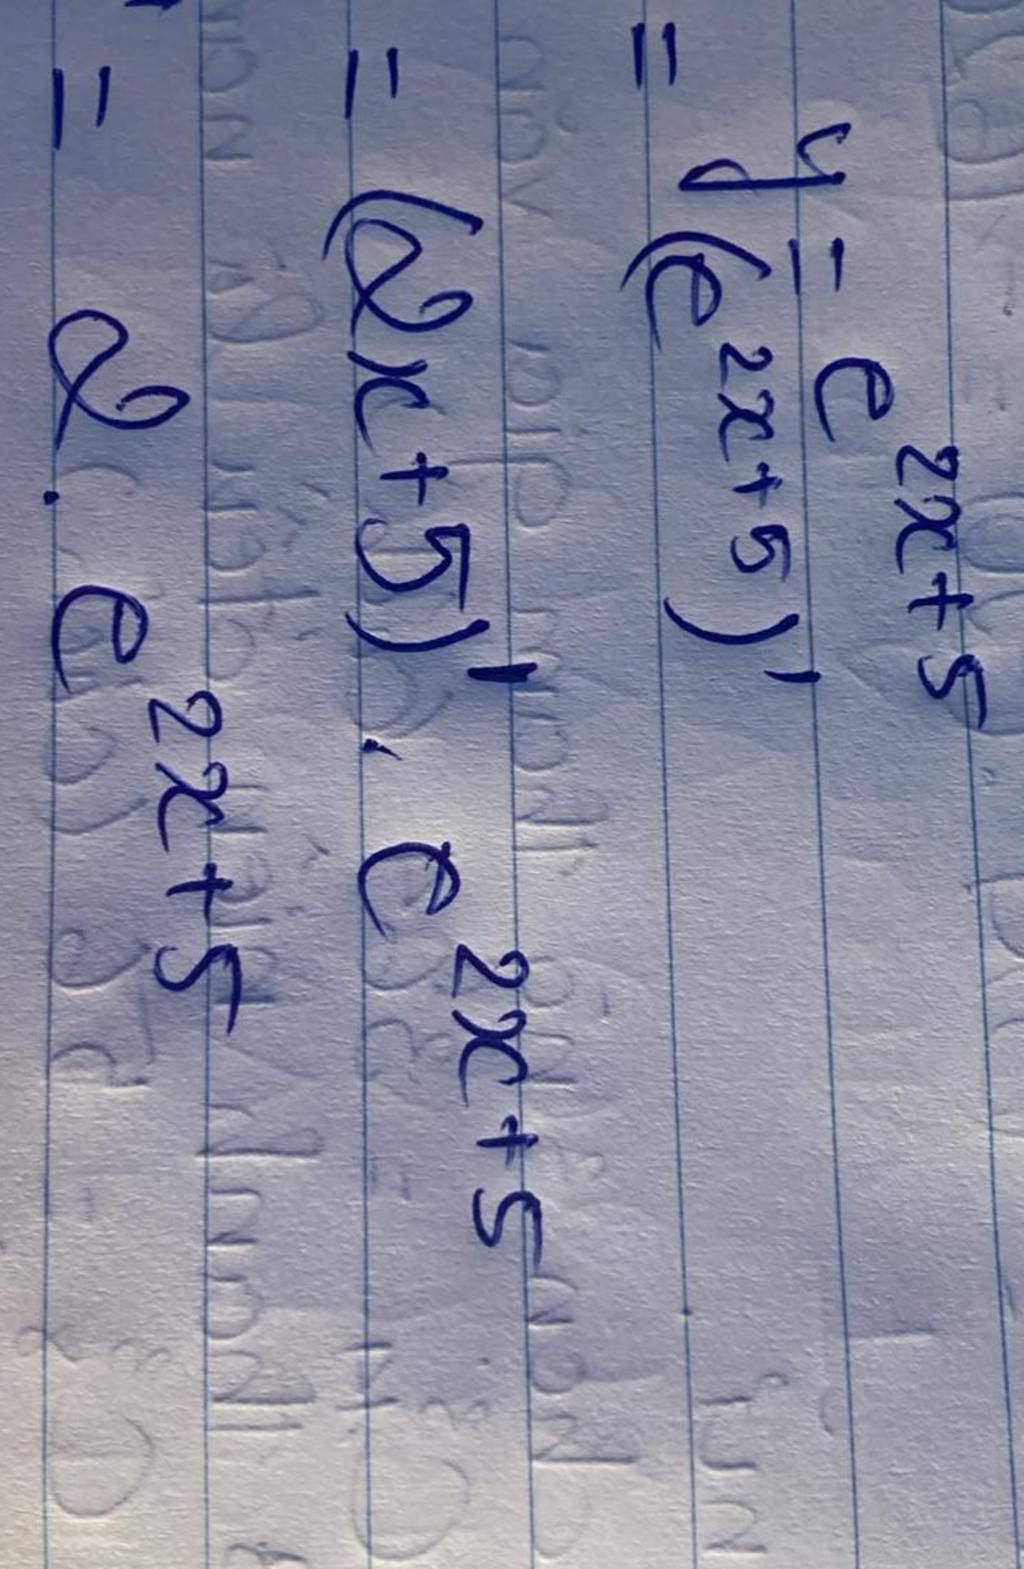 y = e^{2x+5}
= (e^{2x+5})'
= (2x+5)' . e^{2x+5}
= 2 . e^{2x+5}